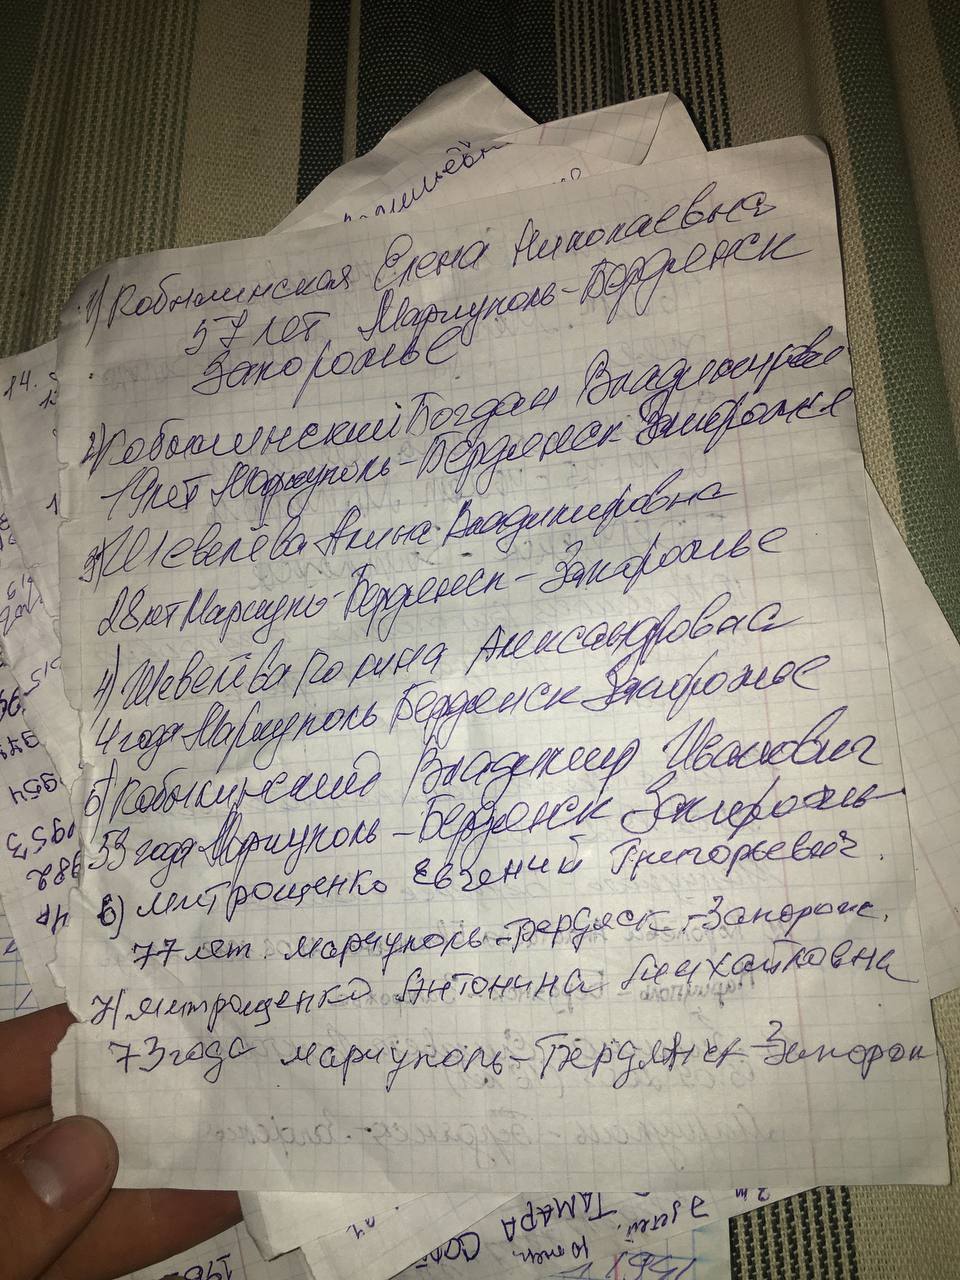 1) Кобылинская Елена Николаевна
57 лет Мариуполь-Бердянск
Запорожье
2) Кобылинский Богдан Владимирови
19 лет Мариуполь-Бердянск Запорожье
3) Шевелёва Алина Владимировна
28 лет Мариуполь-Бердянск-Запорожье
4) Шевелёва Полина Александровна
4 года Мариуполь Бердянск Запорожье
5) Кобылинский Владимир Иванович
53 года Мариуполь-Бердянск-Запорожье
6) Митрощенко Евгений Григорьевич.
77 лет. Мариуполь-Бердяск-Запорож.
7) Митрощенко Антонина Михайловна
73 года Мариуполь-Бердянск-Запорож
14.
954
0953
982
ТАМАРА
3 детей.